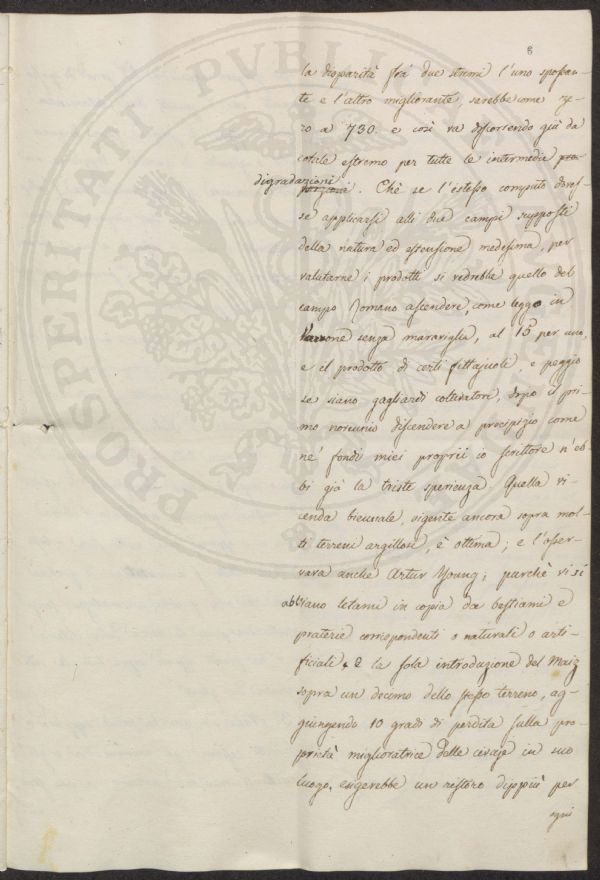 8
la disparità fra due stremi l'uno spossan-
te e l'altro migliorante, sarebbe come ze-
ro a 730. e così va discorrendo giù da
cotale estremo per tutte le intermedie
digradazioni. Chè se l'istesso computo doves-
se applicarsi alli due campi supposti
della natura ed estensione medesima, per
valutarne i prodotti si vedrebbe quello del
campo Romano ascendere, come leggo in
Varrone senza maraviglia, al 15 per uno,
e il prodotto di certi fittajuoli, e peggio
se siano gagliardi coltivatori, dopo il pri-
mo novennio discendere a precipizio come
ne' fondi miei proprii io scrittore n'eb-
bi già la triste sperienza. Quella vi-
cenda biennale, vigente ancora sopra mol-
ti terreni argillosi, è ottima; e l'osser-
vava anche Artur Young; purchè vi si
abbiano letami in copia da bestiami e
praterie corrispondenti o naturali o arti-
ficiali. E la sola introduzione del Maiz
sopra un decimo dello stesso terreno, ag-
giungendo 10 gradi di perdita sulla pro-
prietà miglioratrice delle civaje in suo
luogo, esigerebbe un ristoro dippiù per
ogni
PROSPERITATI PVBLIC